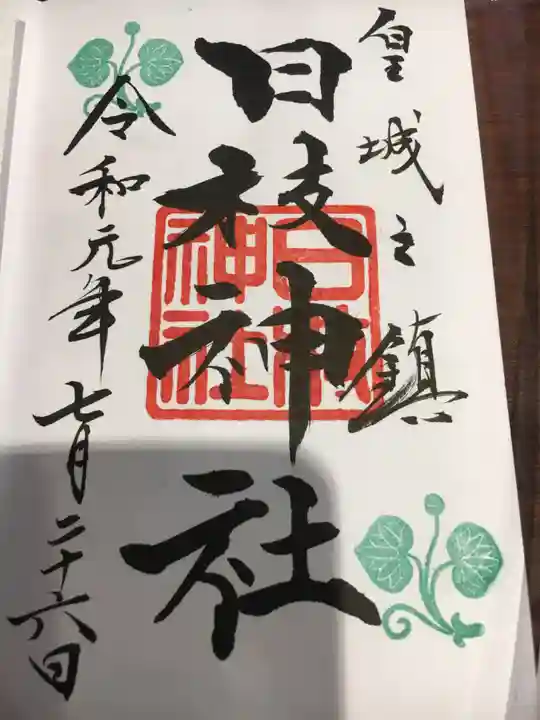 皇城之鎮
日枝神社
日枝神社
令和元年七月二十六日